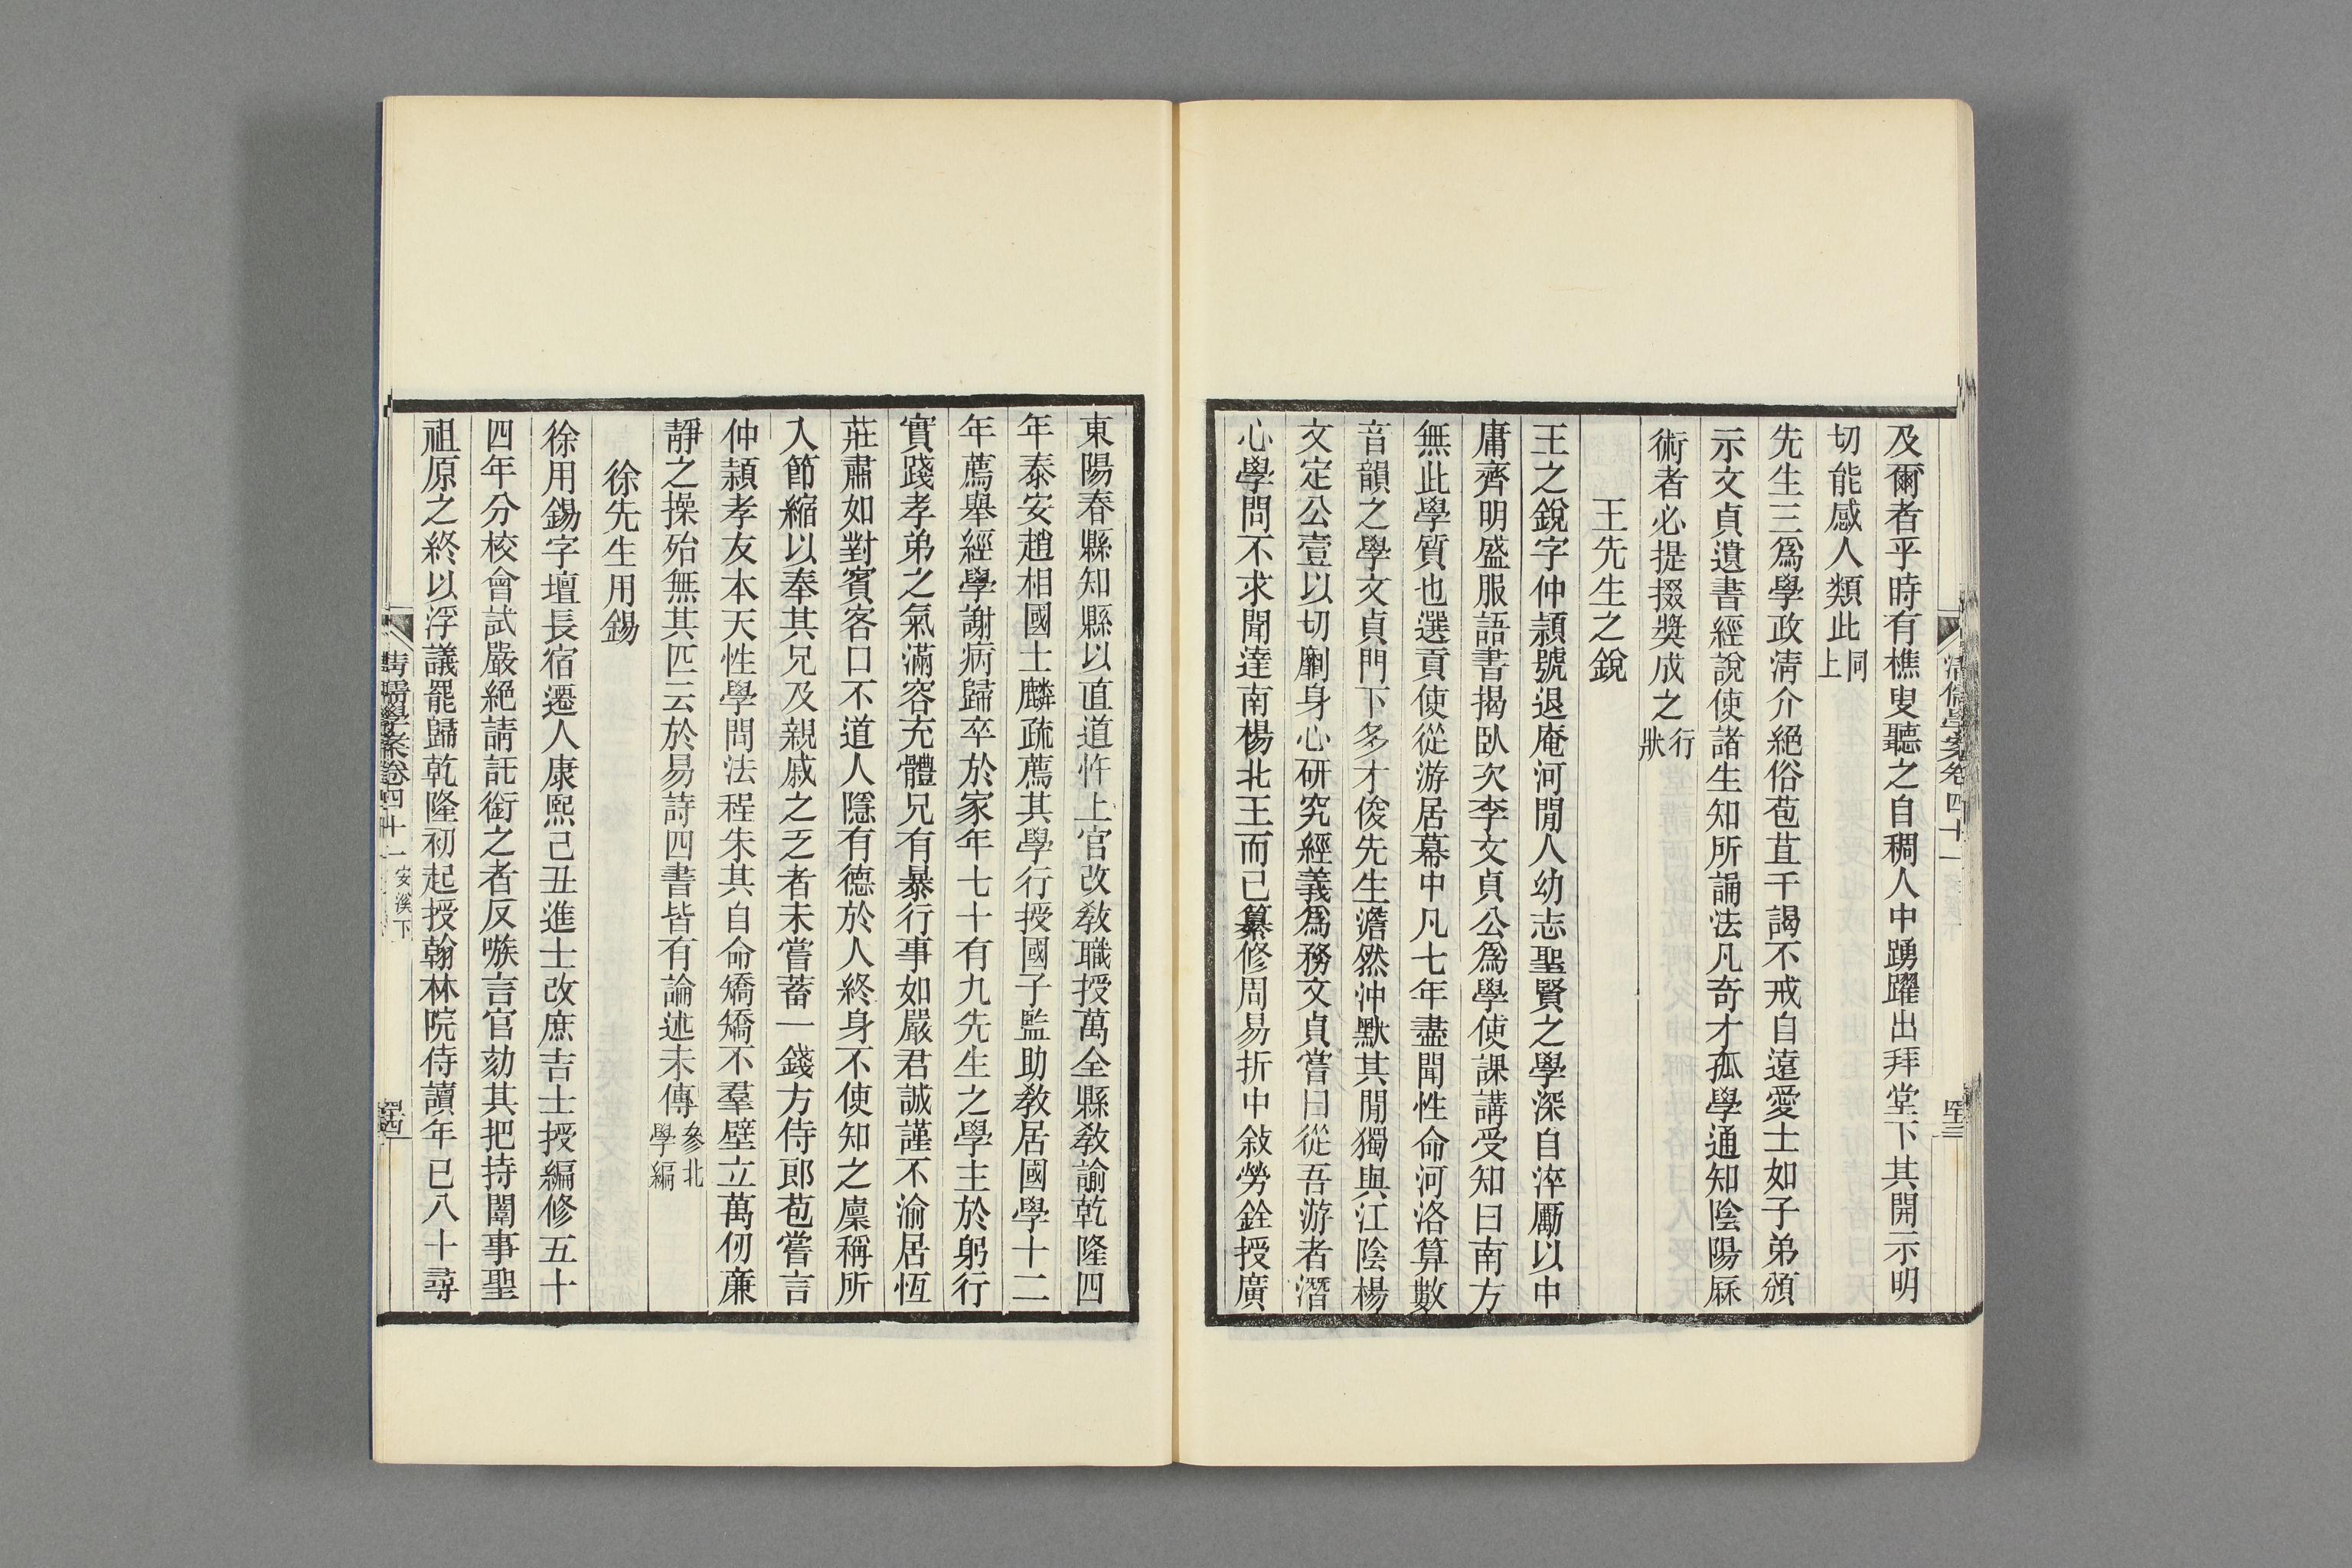 清儒學案卷四十一
四十三
及爾者乎時有樵叟聽之自稠人中踴躍出拜堂下其開示明
切能感人類此同上
先生三爲學政清介絕俗苞苴干謁不戒自遠愛士如子弟頒
示文貞遺書經說使諸生知所誦法凡奇才孤學通知陰陽厤
術者必提掇獎成之行狀
王先生之銳
王之銳字仲潁號退庵河閒人幼志聖賢之學深自淬厲以中
庸齊明盛服語書揭臥次李文貞公爲學使課講受知曰南方
無此學質也選貢使從游居幕中凡七年盡聞性命河洛算數
音韻之學文貞門下多才俊先生澹然沖默其閒獨與江陰楊
文定公壹以切劘身心研究經義爲務文貞嘗曰從吾游者潛
心學問不求聞達南楊北王而已纂修周易折中敍勞銓授廣
東陽春縣知縣以直道忤上官改敎職授萬全縣敎諭乾隆四
年泰安趙相國士麟疏薦其學行授國子監助敎居國學十二
年薦舉經學謝病歸卒於家年七十有九先生之學主於躬行
實踐孝弟之氣滿容充體兄有暴行事如嚴君誠謹不渝居恆
莊肅如對賓客口不道人隱有德於人終身不使知之廩稱所
入節縮以奉其兄及親戚之乏者未嘗蓄一錢方侍郎苞嘗言
仲潁孝友本天性學問法程朱其自命矯矯不羣壁立萬仞廉
靜之操殆無其匹云於易詩四書皆有論述未傳參北學編
徐先生用錫
徐用錫字壇長宿遷人康熙己丑進士改庶吉士授編修五十
四年分校會試嚴絕請託銜之者反嗾言官劾其把持闈事聖
祖原之終以浮議罷歸乾隆初起授翰林院侍讀年已八十尋
清儒學案卷四十一 安溪下
四十四